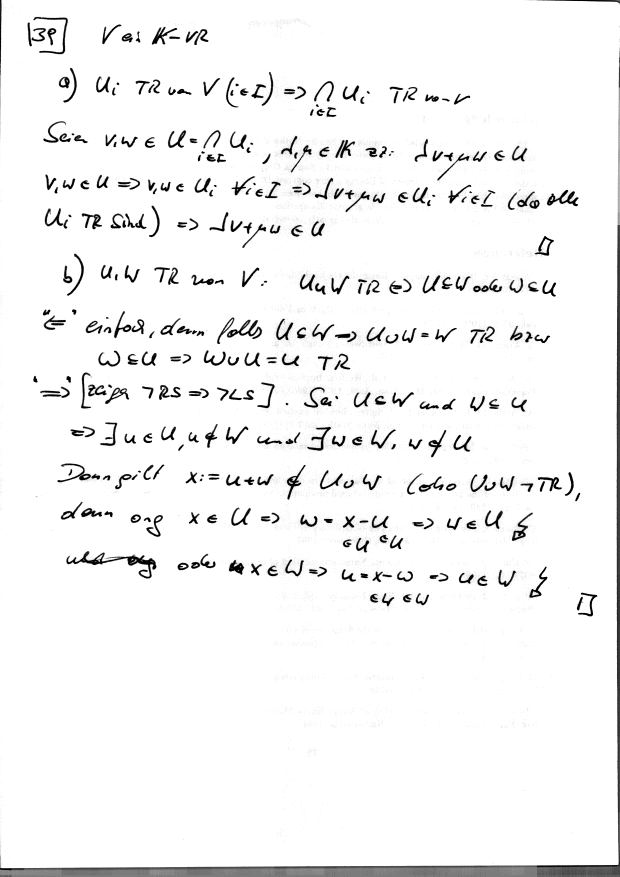 39 V ein K-VR
a) Ui TR von V (i∈I) => ⋂ Ui TR von V
i∈I
Seien v,w ∈ U = ⋂ Ui, λ,μ ∈ K zz: λv+μw ∈ U
i∈I
v,w ∈ U => v,w ∈ Ui ∀i∈I => λv+μw ∈ Ui ∀i∈I (da alle
Ui TR sind) => λv+μw ∈ U
□
b) U,W TR von V: U∪W TR <=> U⊆W oder W⊆U
"<=" einfach, denn falls U⊆W => U∪W = W TR bzw
W⊆U => W∪U = U TR
"=>" [zeige ¬RS => ¬LS]. Sei U⊆W und W⊆U
=> ∃u∈U, u∉W und ∃w∈W, w∉U
Dann gilt x := u+w ∉ U∪W (also U∪W ¬TR),
denn ang x∈U => w = x-u => w∈U ↯
∈U ∈U
oder x∈W => u = x-w => u∈W ↯
∈W ∈W
□